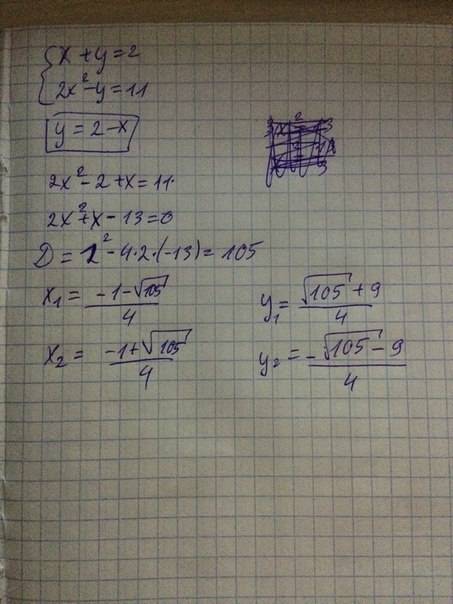 x + y = 2
2x² - y = 11
y = 2 - x
2x² - 2 + x = 11
2x² + x - 13 = 0
D = 1² - 4·2·(-13) = 105
x₁ = (-1 - √105)/4
y₁ = (√105 + 9)/4
x₂ = (-1 + √105)/4
y₂ = -(√105 - 9)/4